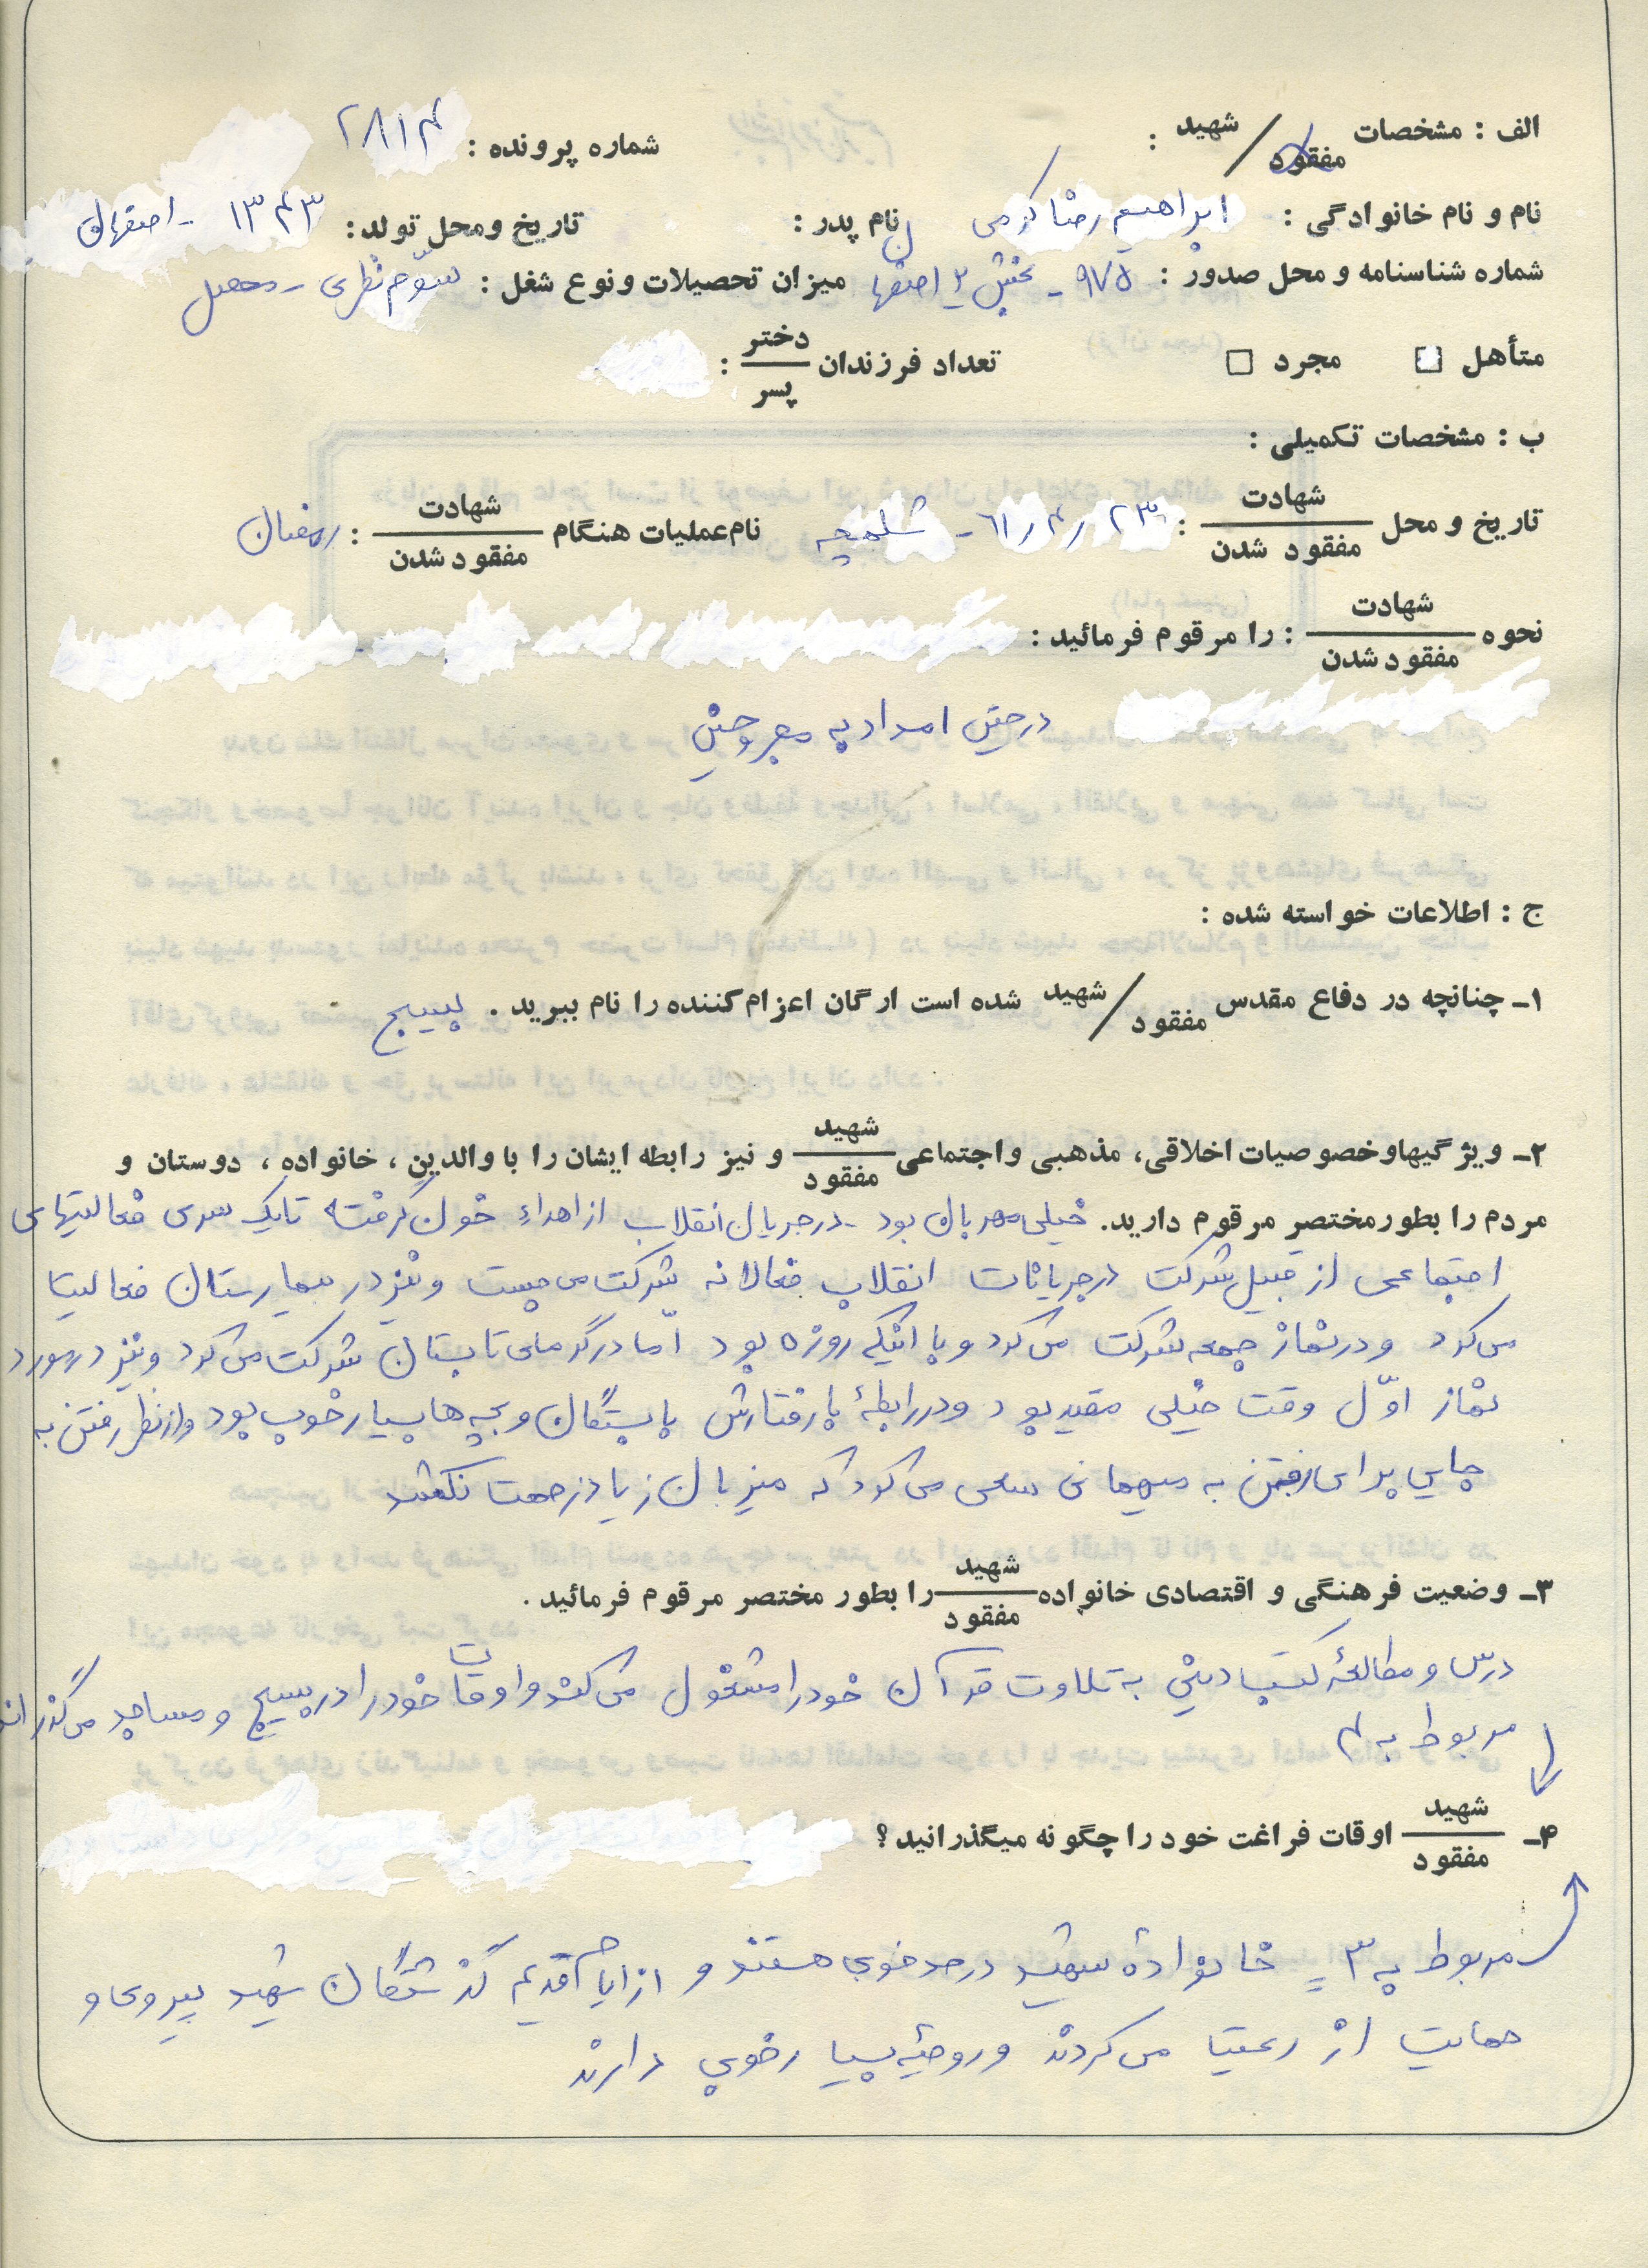 الف : مشخصات شهید / مفقود :
شماره پرونده : ۲۸۱۴
نام و نام خانوادگی : ابراهیم رضا کرمی نام پدر : تاریخ و محل تولد : ۱۳۴۳ - اصفهان
شماره شناسنامه و محل صدور : ۹۷۵ - بخش ۲ اصفهان میزان تحصیلات و نوع شغل : سوّم نظری - محصل
متأهل □ مجرد □ تعداد فرزندان دختر / پسر :
ب : مشخصات تکمیلی :
تاریخ و محل شهادت / مفقود شدن : ۶۱/۴/۲۳ - شلمچه نام عملیات هنگام شهادت / مفقود شدن : رمضان
نحوه شهادت / مفقود شدن : را مرقوم فرمائید :
در حین امداد به مجروحین
ج : اطلاعات خواسته شده :
۱- چنانچه در دفاع مقدس شهید / مفقود شده است ارگان اعزام کننده را نام ببرید . بسیج
۲- ویژگیها و خصوصیات اخلاقی، مذهبی و اجتماعی شهید / مفقود و نیز رابطه ایشان را با والدین ، خانواده ، دوستان و
مردم را بطور مختصر مرقوم دارید. خیلی مهربان بود - در جریان انقلاب از اهداء خون گرفته تا یک سری فعالیتهای
اجتماعی از قبیل شرکت در جریانات انقلاب فعالانه شرکت می جست و نیز در بیمارستان فعالیت
می کرد و در نماز جمعه شرکت می کرد و با اینکه روزه بود امّا در گرمای تابستان شرکت می کرد و نیز در مورد
نماز اوّل وقت خیلی مقید بود و در رابطهٔ با رفتارش با بستگان و بچه ها بسیار خوب بود و از نظر رفتن به
جایی برای رفتن به میهمانی سعی می کرد که میزبان زیاد زحمت نکشد
۳- وضعیت فرهنگی و اقتصادی خانواده شهید / مفقود را بطور مختصر مرقوم فرمائید .
درس و مطالعهٔ کتب دینی به تلاوت قرآن خود را مشغول می کند و اوقات خود را در بسیج و مساجد می گذراند
مربوط به ۴
۴- شهید / مفقود اوقات فراغت خود را چگونه میگذرانید ؟
مربوط به ۳ = خانوادهٔ شهید در حد خوبی هستند و از ایام قدیم گذشتگان شهید پیروی و
حمایت از می کردند و روحیهٔ بسیار خوبی دارند